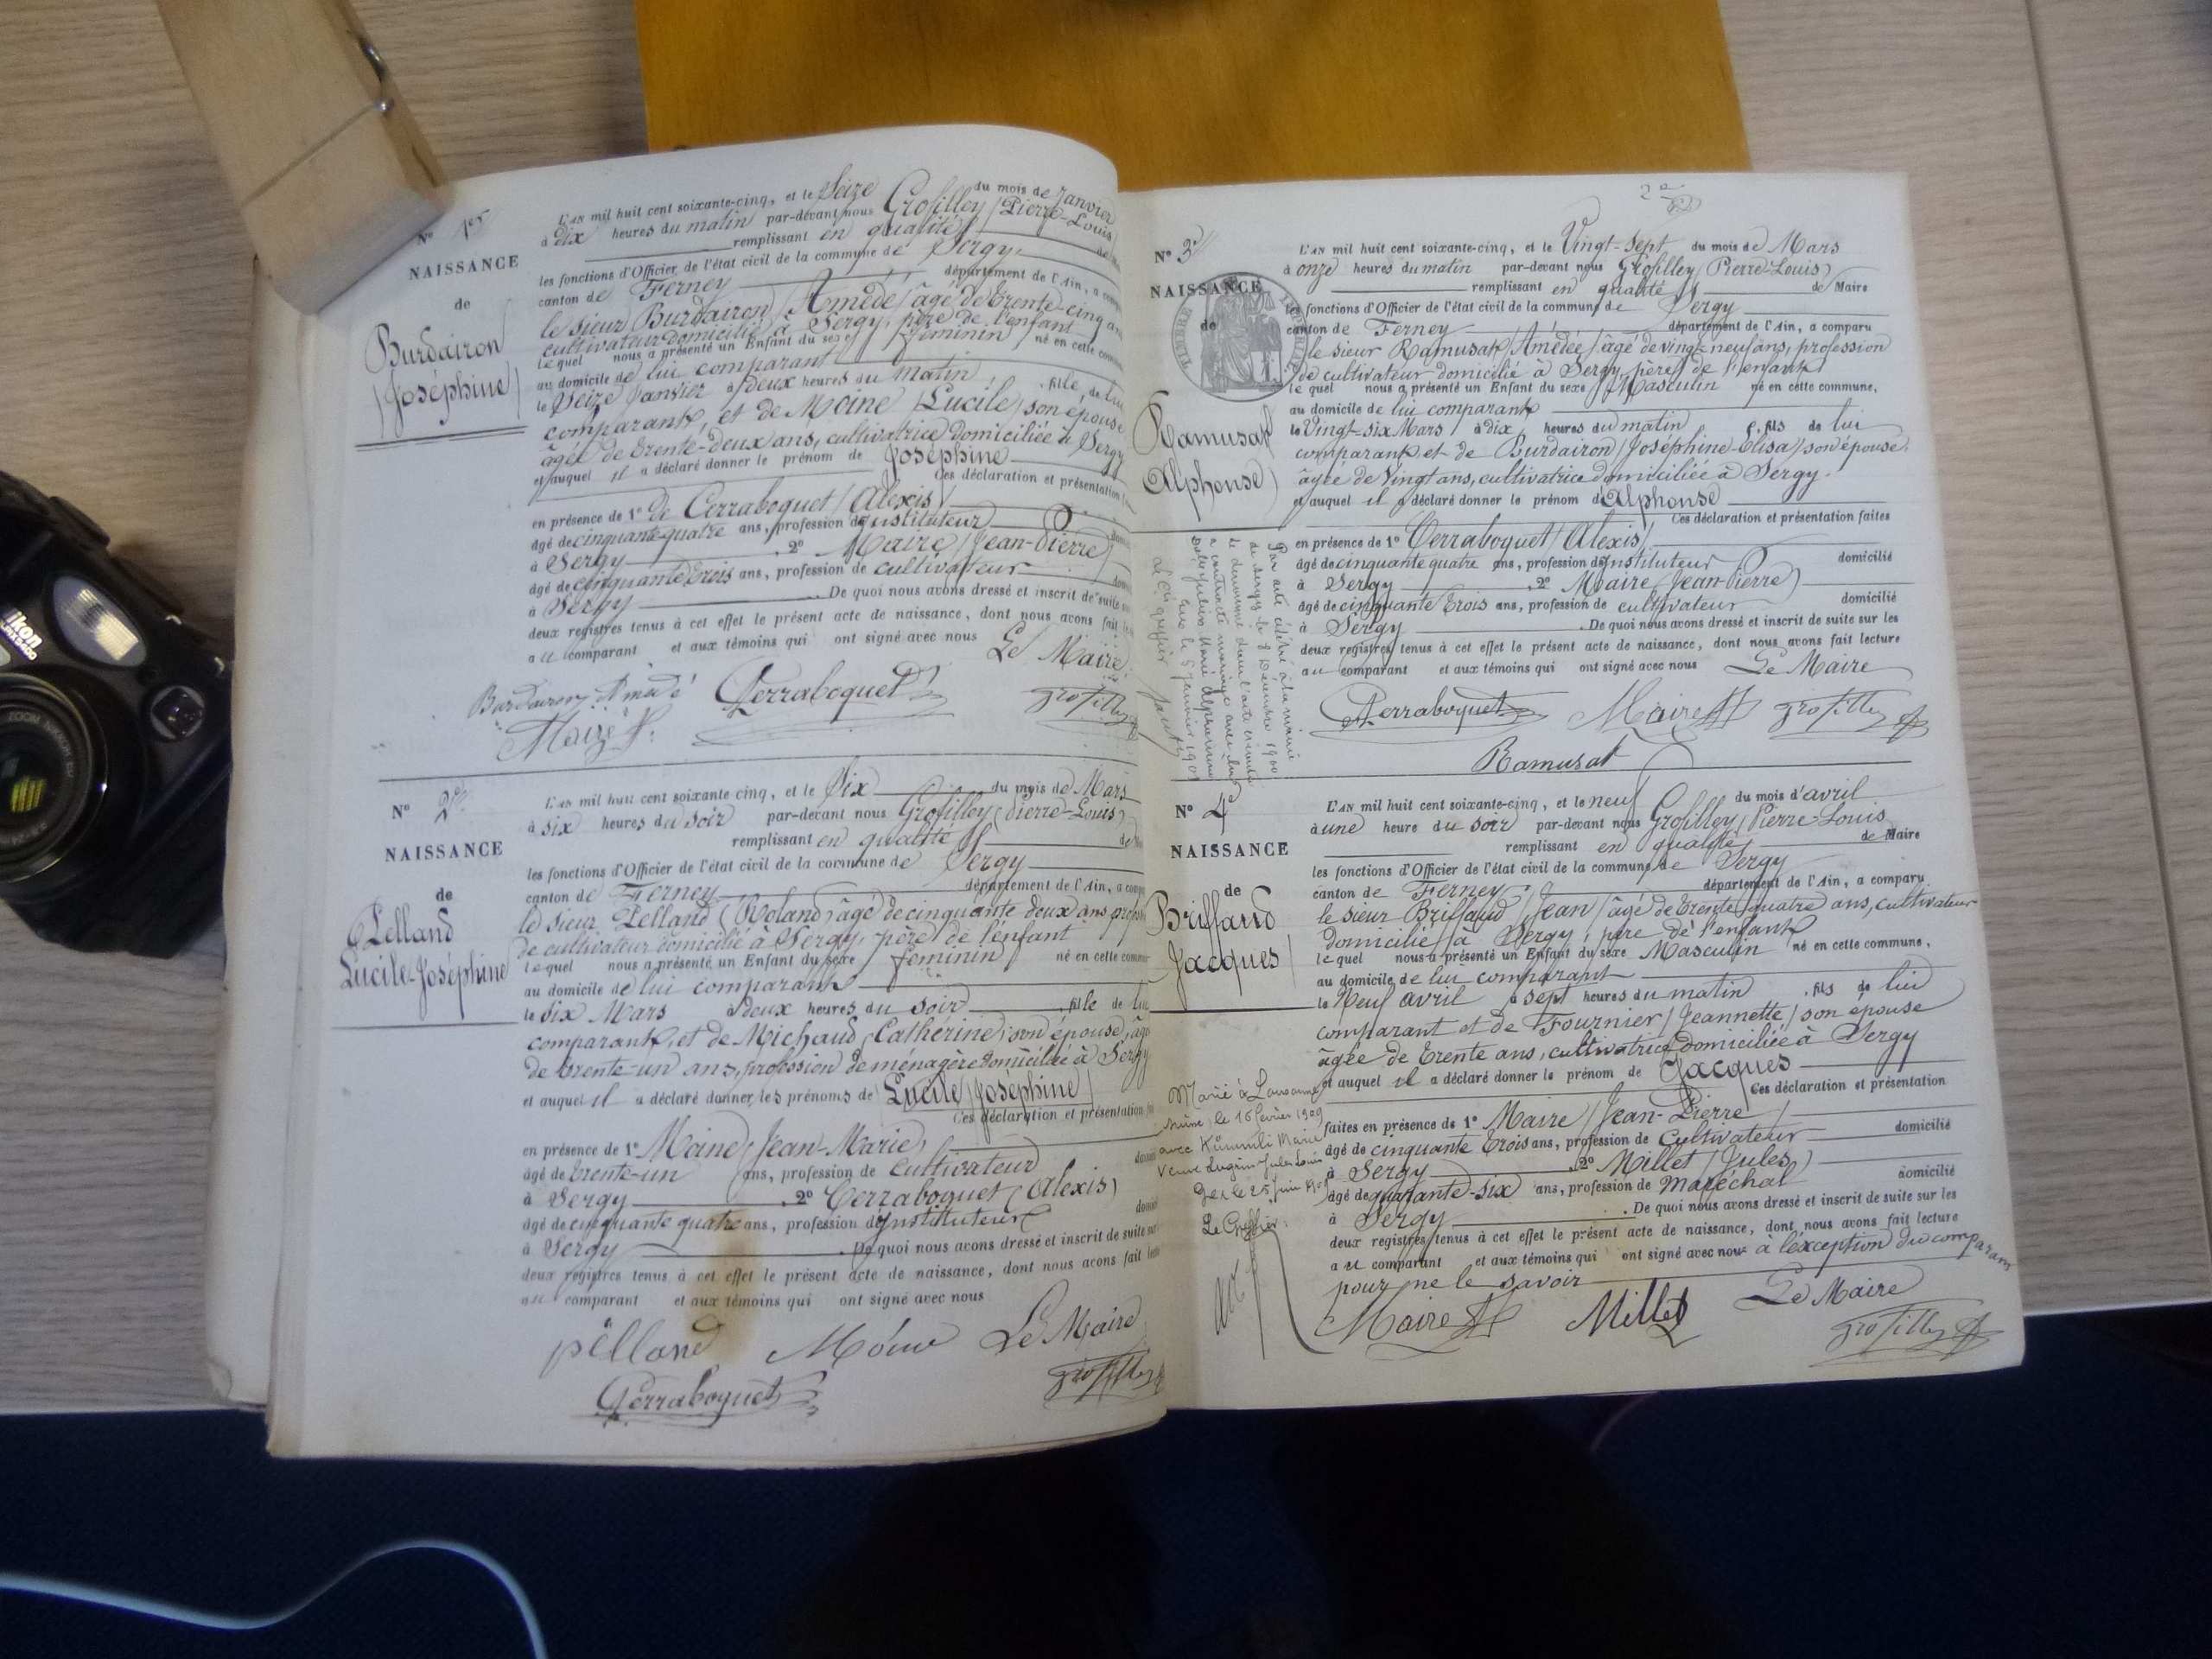 N° 1er
NAISSANCE
de
Burdairon
(Joséphine)
L'AN mil huit cent soixante-cinq, et le Seize du mois de Janvier
à dix heures du matin par-devant nous Grosilley (Pierre-Louis)
remplissant en qualité de
les fonctions d'Officier de l'état civil de la commune de Sergy,
canton de Ferney département de l'Ain, a comp
le sieur Burdairon (Amédé) âgé de trente-cinq ans
cultivateur domicilié à Sergy, père de l'enfant
lequel nous a présenté un Enfant du sexe féminin né en cette comm
au domicile de lui comparant
le Seize Janvier à deux heures du matin , fille de lui
comparant, et de Moine (Lucile) son épouse
âgée de trente-deux ans, cultivatrice domiciliée à Sergy
et auquel il a déclaré donner le prénom de Joséphine
Ces déclaration et présentation
en présence de 1° de Perraboquet (Alexis)
âgé de cinquante-quatre ans, profession d'instituteur
à Sergy , 2° Maire (Jean-Pierre)
âgé de cinquante trois ans, profession de cultivateur
à Sergy . De quoi nous avons dressé et inscrit de suite
deux registres tenus à cet effet le présent acte de naissance, dont nous avons fait
au comparant et aux témoins qui ont signé avec nous Le Maire
Burdairon Amédé Perraboquet Grosilley
Maire P.
N° 2e
NAISSANCE
de
Pelland
Lucile-Joséphine
L'AN mil huit cent soixante cinq, et le Six du mois de Mars
à six heures du soir par-devant nous Grosilley (Pierre-Louis)
remplissant en qualité de
les fonctions d'Officier de l'état civil de la commune de Sergy
canton de Ferney département de l'Ain, a comp
le sieur Pelland (Roland) âgé de cinquante deux ans profess
de cultivateur domicilié à Sergy, père de l'enfant
lequel nous a présenté un Enfant du sexe féminin né en cette comm
au domicile de lui comparant
le six Mars à deux heures du soir , fille de lui
comparant, et de Michaud (Cathérine) son épouse, âg
de trente-un ans, profession de ménagère domiciliée à Sergy
et auquel il a déclaré donner les prénoms de Lucile (Joséphine)
Ces déclaration et présentation
en présence de 1° Moine (Jean-Marie)
âgé de trente-un ans, profession de cultivateur
à Sergy , 2° Perraboquet (Alexis)
âgé de cinquante quatre ans, profession d'Instituteur
à Sergy . De quoi nous avons dressé et inscrit de suite sur
deux registres tenus à cet effet le présent acte de naissance, dont nous avons fait
au comparant et aux témoins qui ont signé avec nous
pelland Moine Le Maire
Perraboquet Grosilley
N° 3e
NAISSANCE
de
TIMBRE IMPERIAL
Ramusat
Alphonse)
L'AN mil huit cent soixante-cinq, et le Vingt-Sept du mois de Mars
à onze heures du matin par-devant nous Grosilley (Pierre-Louis)
remplissant en qualité de Maire
les fonctions d'Officier de l'état civil de la commune de Sergy
canton de Ferney département de l'Ain, a comparu
le sieur Ramusat (Amédée) âgé de vingt-neuf ans, profession
de cultivateur domicilié à Sergy père de l'enfant
lequel nous a présenté un Enfant du sexe Masculin né en cette commune,
au domicile de lui comparant
le Vingt-six Mars à dix heures du matin , fils de lui
comparant et de Burdairon (Joséphine-Elisa) son épouse,
âgée de Vingt ans, cultivatrice domiciliée à Sergy.
et auquel il a déclaré donner le prénom d'Alphonse
Ces déclaration et présentation faites
en présence de 1° Perraboquet (Alexis)
âgé de cinquante quatre ans, profession d'Instituteur domicilié
à Sergy , 2° Maire (Jean-Pierre)
âgé de cinquante trois ans, profession de cultivateur domicilié
à Sergy . De quoi nous avons dressé et inscrit de suite sur les
deux registres tenus à cet effet le présent acte de naissance, dont nous avons fait lecture
au comparant et aux témoins qui ont signé avec nous Le Maire
Perraboquet Maire Grosilley
Ramusat
Par acte célébré à la mairie
de Sergy le 8 Décembre 1900
a contracté mariage avec
janvier 1901
Le Greffier
N° 4e
NAISSANCE
de
Briffaud
Jacques)
L'AN mil huit cent soixante-cinq, et le neuf du mois d'avril
à une heure du soir par-devant nous Grosilley (Pierre-Louis
remplissant en qualité de Maire
les fonctions d'Officier de l'état civil de la commune de Sergy
canton de Ferney département de l'Ain, a comparu
le sieur Briffaud (Jean) âgé de trente quatre ans, cultivateur
domicilié à Sergy, père de l'enfant
lequel nous a présenté un Enfant du sexe Masculin né en cette commune,
au domicile de lui comparant
le Neuf avril à sept heures du matin , fils de lui
comparant et de Fournier (Jeannette) son épouse
âgée de trente ans, cultivatrice domiciliée à Sergy
et auquel il a déclaré donner le prénom de Jacques
Ces déclaration et présentation
faites en présence de 1° Maire (Jean-Pierre)
âgé de cinquante trois ans, profession de Cultivateur domicilié
à Sergy , 2° Millet (Jules)
âgé de quarante-six ans, profession de Maréchal domicilié
à Sergy . De quoi nous avons dressé et inscrit de suite sur les
deux registres tenus à cet effet le présent acte de naissance, dont nous avons fait lecture
au comparant et aux témoins qui ont signé avec nous à l'exception du comparant
pour ne le savoir
Maire Millet Le Maire
Grosilley
Marié à Lausanne
Suisse, le 16 février 1909
avec Kümmli Marie
Veuve Eugène-Jules-Louis
Gex le 25 juin
Le Greffier: